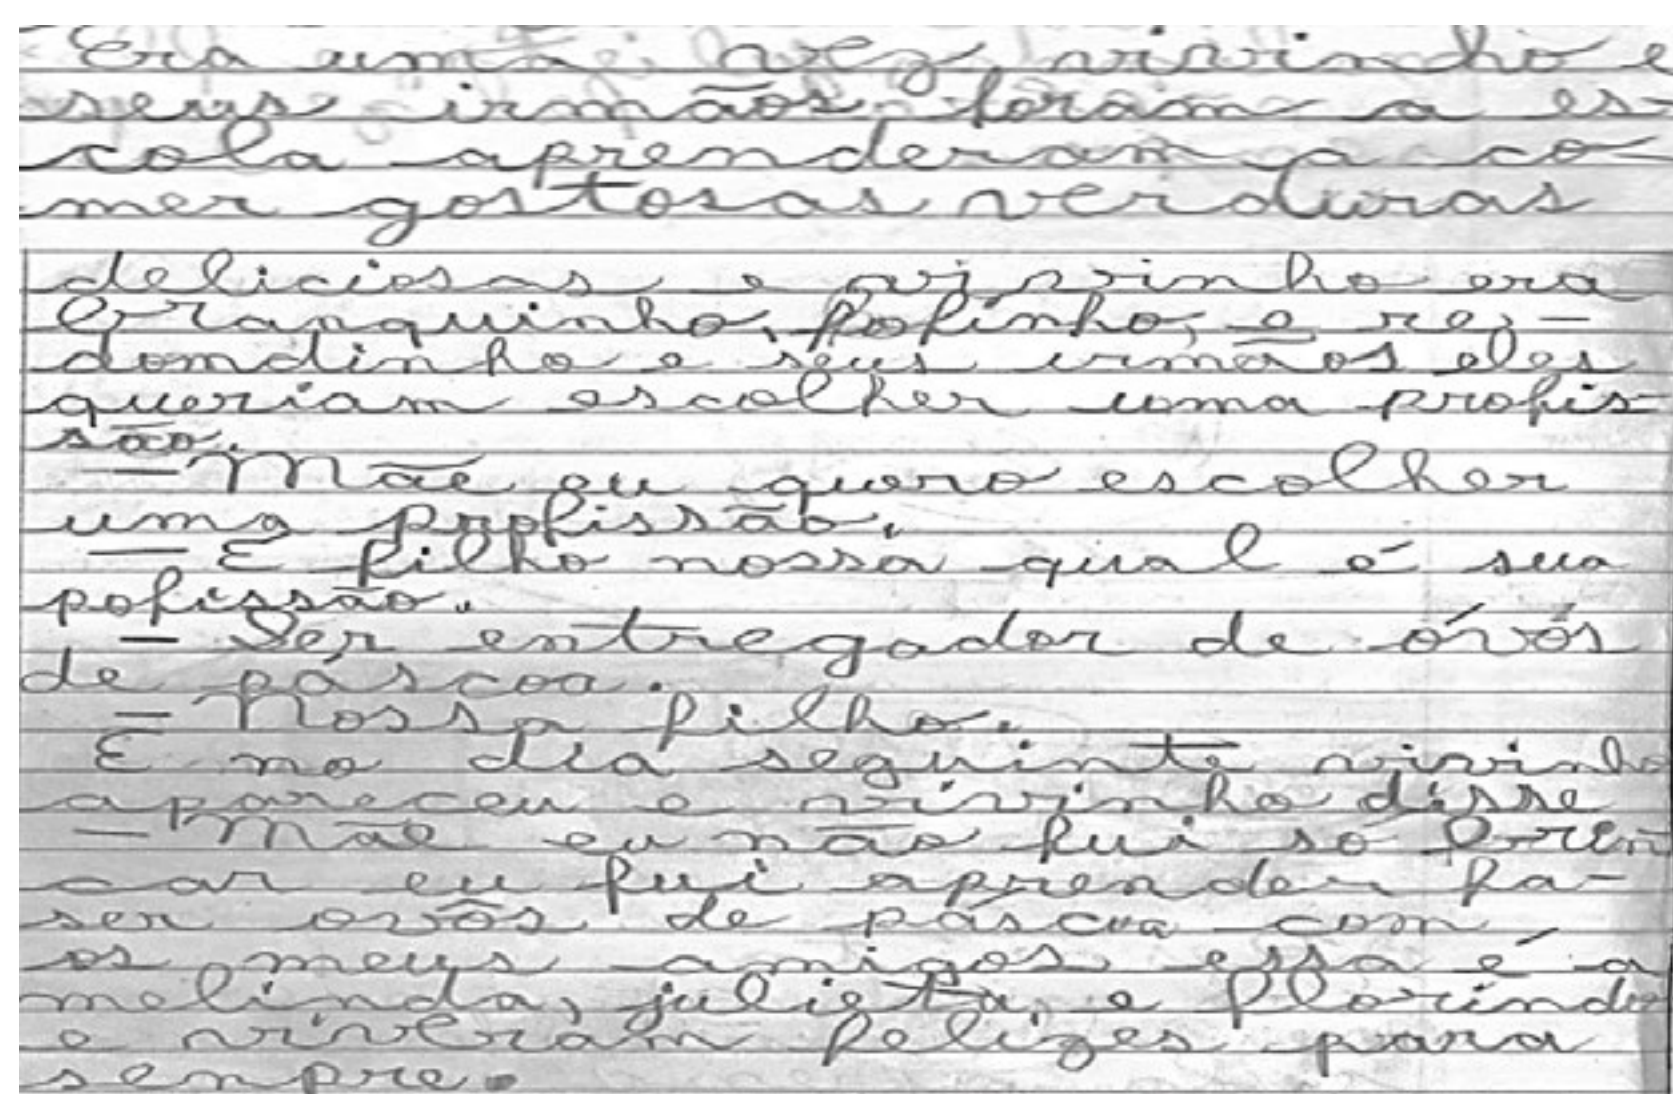 Era uma vez vivinho e
seus irmãos, foram a es-
cola aprenderam a co-
mer gostosas verduras
deliciosas e vivinho era
branquinho, fofinho, e re-
domdinho e seus irmãos eles
queriam escolher uma profis-
são.
— Mãe eu quero escolher
uma profissão.
— E filho nossa qual é sua
pofissão.
— Ser entregador de óvós
de páscoa.
— Nossa filho.
E no dia seguinte vivinho
apareceu e vivinho disse
— Mãe eu não fui so brin
car eu fui aprender fa-
ser ovôs de páscoa com
os meus amigos essa é a
melinda, julieta, e florindo
e viveram felizes para
senpre.